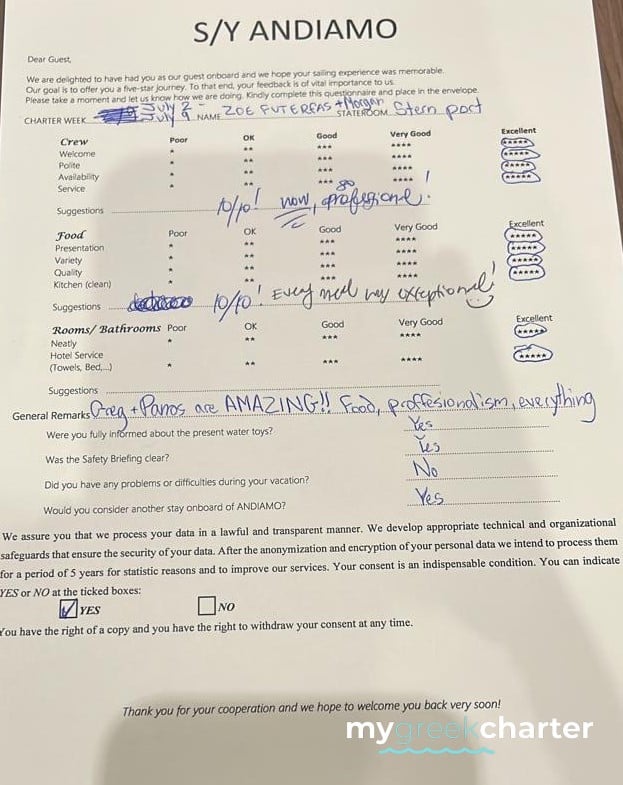 S/Y ANDIAMO
Dear Guest,
We are delighted to have had you as our guest onboard and we hope your sailing experience was memorable.
Our goal is to offer you a five-star journey. To that end, your feedback is of vital importance to us.
Please take a moment and let us know how we are doing. Kindly complete this questionnaire and place in the envelope.
CHARTER WEEK July 2 - July 9 NAME ZOE FUTERFAS + Morgan STATEROOM Stern port
Crew Poor OK Good Very Good Excellent
Welcome * ** *** **** *****
Polite * ** *** **** *****
Availability * ** *** **** *****
Service * ** *** **** *****
Suggestions 10/10! wow, so professional!
Food Poor OK Good Very Good Excellent
Presentation * ** *** **** *****
Variety * ** *** **** *****
Quality * ** *** **** *****
Kitchen (clean) * ** *** **** *****
Suggestions 10/10! Every meal was exceptional!
Rooms/ Bathrooms Poor OK Good Very Good Excellent
Neatly * ** *** **** *****
Hotel Service
(Towels, Bed,...) * ** *** **** *****
Suggestions
General Remarks Greg + Panos are AMAZING!! Food, proffesionalism, everything
Were you fully informed about the present water toys? Yes
Was the Safety Briefing clear? Yes
Did you have any problems or difficulties during your vacation? No
Would you consider another stay onboard of ANDIAMO? Yes
We assure you that we process your data in a lawful and transparent manner. We develop appropriate technical and organizational
safeguards that ensure the security of your data. After the anonymization and encryption of your personal data we intend to process them
for a period of 5 years for statistic reasons and to improve our services. Your consent is an indispensable condition. You can indicate
YES or NO at the ticked boxes:
YES NO
You have the right of a copy and you have the right to withdraw your consent at any time.
Thank you for your cooperation and we hope to welcome you back very soon!
mygreekcharter